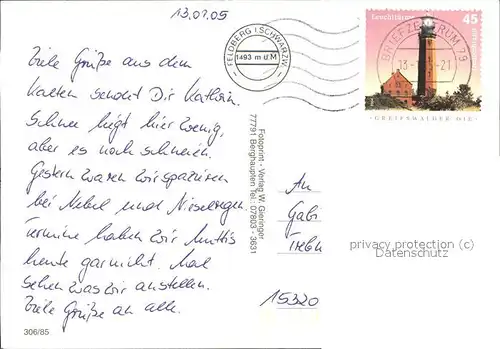 13.01.05
FELDBERG i SCHWARZW.
1493 m ü.M
Leuchttürme
45
BRIEFZENTRUM 79
-21
GREIFSWALDER OIE
Viele Grüße aus dem
Kalten sendet Dir Kathrin.
Schnee liegt hier wenig,
aber es
Gestern waren wir spazieren
bei Nebel und Nieselregen.
Termine haben wir
heute gar nicht. Mal
sehen was wir anstellen.
Viele Grüße an alle.
Fotoprint - Verlag W. Gieringer
77791 Berghaupten Tel.: 07803 - 3631
An
Gabi
privacy protection (c)
Datenschutz
15320
306/85